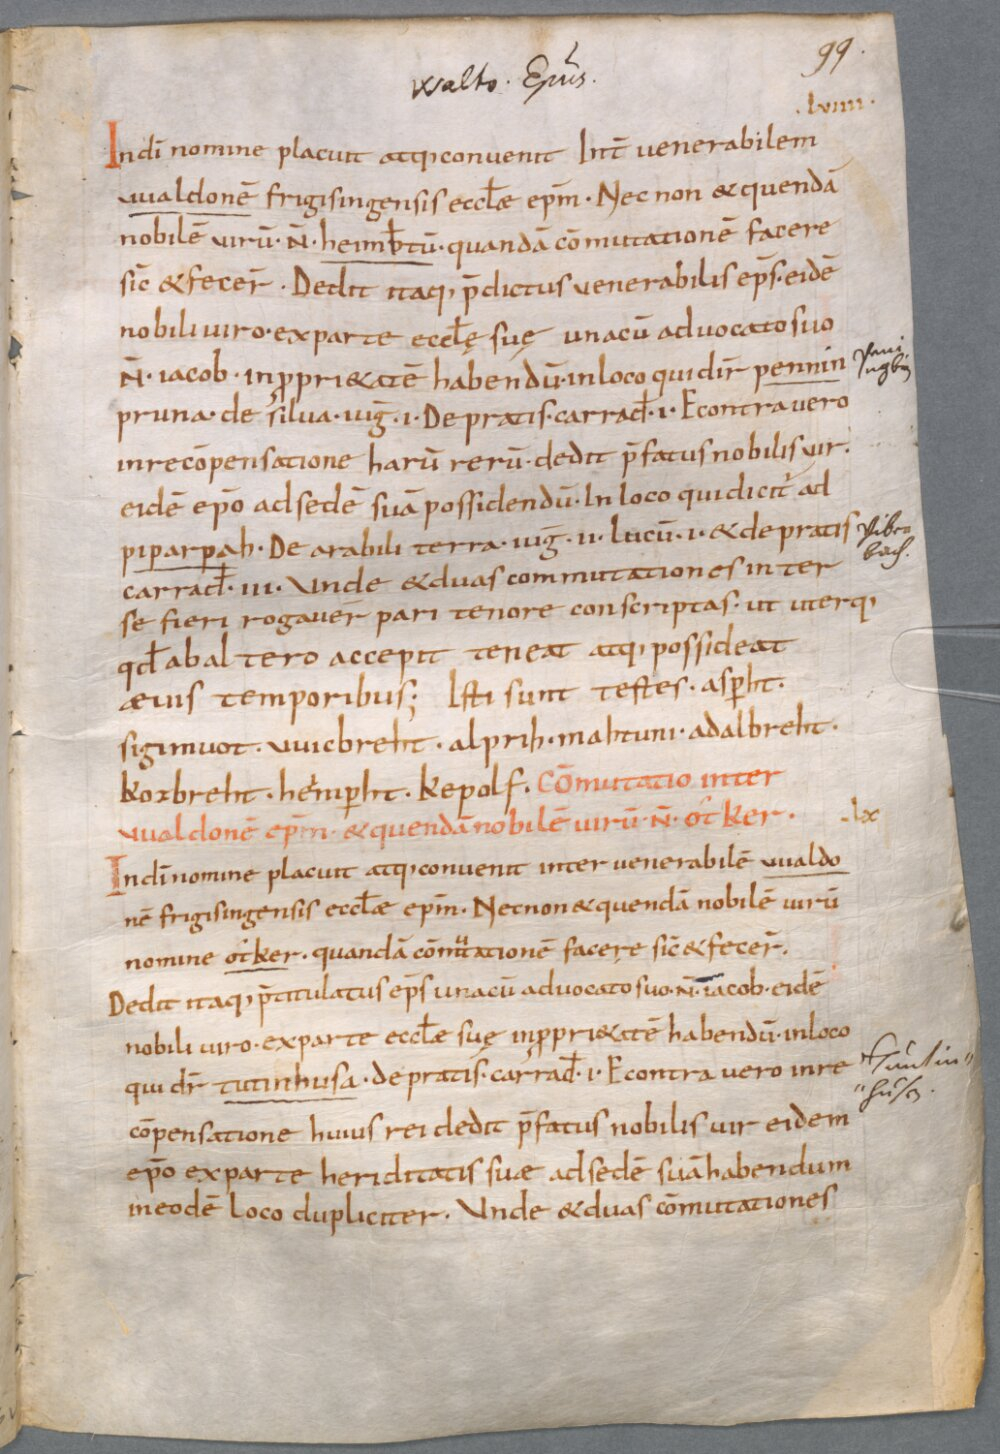 99.
Walto. Ep̄us.
.lviiii.
Indī nomine placuit atq; convenit Int̄ venerabilem
uualdonē frigisingensis eccƚae ep̄m. Nec non & quendā
nobilē virū. N̄. heimb̄tū. quandā cōmutationē facere
sic̄ & fecer̄. Dedit itaq; p̄dictus venerabilis ep̄s. eidē
nobili viro. ex parte eccƚę suę una cū advocato suo
N̄. iacob. in ꝓpri&atē habendū. in loco qui dir̄ pennin
pruna. de silva. iuḡ. i. De pratis. carrad̄. i. E contra vero
in recōpensatione harū rerū. dedit p̄fatus nobilis vir.
eidē ep̄o ad sedē suā possidendū. In loco qui dicit̄ ad
piparpah. De arabili terra. iuḡ. ii. lucū. i. & de pratis
carrad̄. iii. Unde & duas commutationes inter
se fieri rogaver̄ pari tenore conscriptas. ut uterq;
qd̄ ab altero accepit teneat atq; possideat
aeuis temporibus; Isti sunt testes. asp̄ht.
sigimuot. uuicbreht. alprih. mahtuni. adalbreht.
kozbreht. hemp̄ht. kepolf. Cōmutatio inter
uualdonē ep̄m. & quendā nobilē uirū. N̄. ot̄ker.
.lx
Indī nomine placuit atq; convenit inter venerabilē uualdo
nē frigisingensis eccƚae ep̄m. Necnon & quendā nobilē uirū
nomine ot̄ker. quandā cōmutationē facere sic̄ & fecer̄.
Dedit itaq; p̄titulatus ep̄s una cū advocato suo. N̄. iacob. eidē
nobili viro. ex parte eccƚae suę in ꝓpri&atē habendū. in loco
qui dr̄ tutinhusa. de pratis. carrad̄. i. E contra vero in re
cōpensatione huius rei dedit p̄fatus nobilis vir eidem
ep̄o ex parte heriditatis suae ad sedē suā habendum
in eodē loco dupliciter. Unde & duas cōmutationes